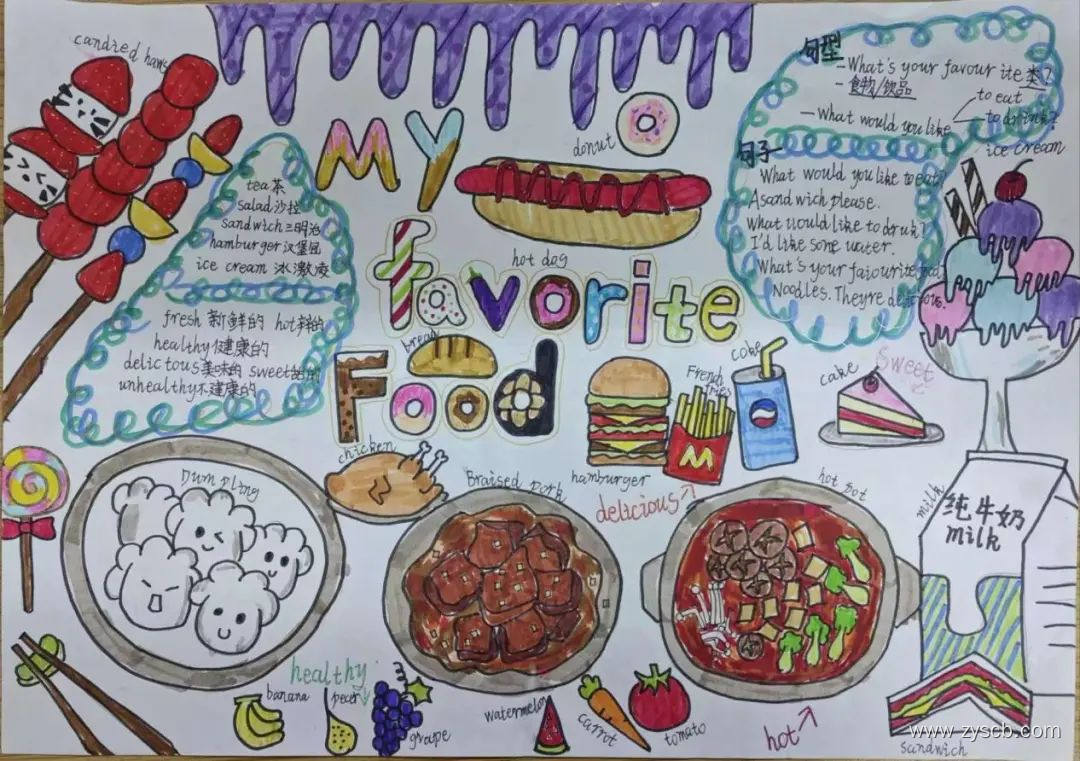 candied haws
My
favorite
Food
donut
hot dog
句型
- What's your favour ite 类?
- 食物/饮品
- What would you like
to eat
to drink?
句子
What would you like to eat?
A sandwich please.
What would like to drink?
I'd like some water.
Noodles. They're
ice cream
tea 茶
salad 沙拉
sandwich 三明治
hamburger 汉堡包
ice cream 冰激凌
fresh 新鲜的 hot 辣的
healthy 健康的
delictous 美味的 sweet 甜的
unhealthy 不健康的
bread
chicken
hamburger
French
fries
coke
cake
sweet
delicious
Dumpling
Braised pork
hot pot
milk
纯牛奶
milk
healthy
banana
grape
watermelon
carrot
tomato
hot
sandwich
www.zyscb.com